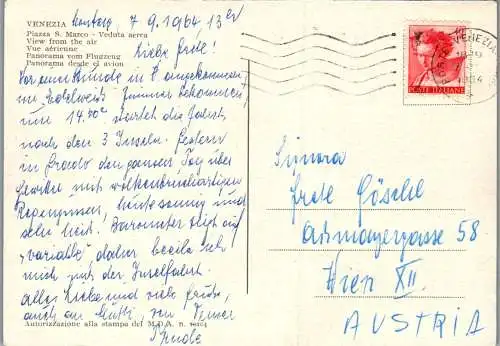 VENEZIA
Piazza S. Marco - Veduta aerea
View from the air
Vue aérienne
Panorama vom Flugzeug
Panorama desde el avion
Montag, 7.9.1964, 13 h
Liebe Grete!
Vor einer Stunde in V. angekommen,
im "Edelweiß" Zimmer bekommen,
um 14.50 startet die Fahrt
nach den 3 Inseln. Gestern
in Grado den ganzen Tag über
Gewitter mit wolkenbruchartigen
Regengüssen, heute sonnig und
sehr heiß. Barometer zeigt auf
"variable" daher beeile ich
mich mit der Inselfahrt.
Alles Liebe und viele Grüße,
auch an Mutti, von Deiner
Autorizzazione alla stampa del M.D.A. n.
POSTE ITALIANE
VENEZIA
Signora
Grete Göschl
Aßmayergasse 58
Wien XII.
AUSTRIA